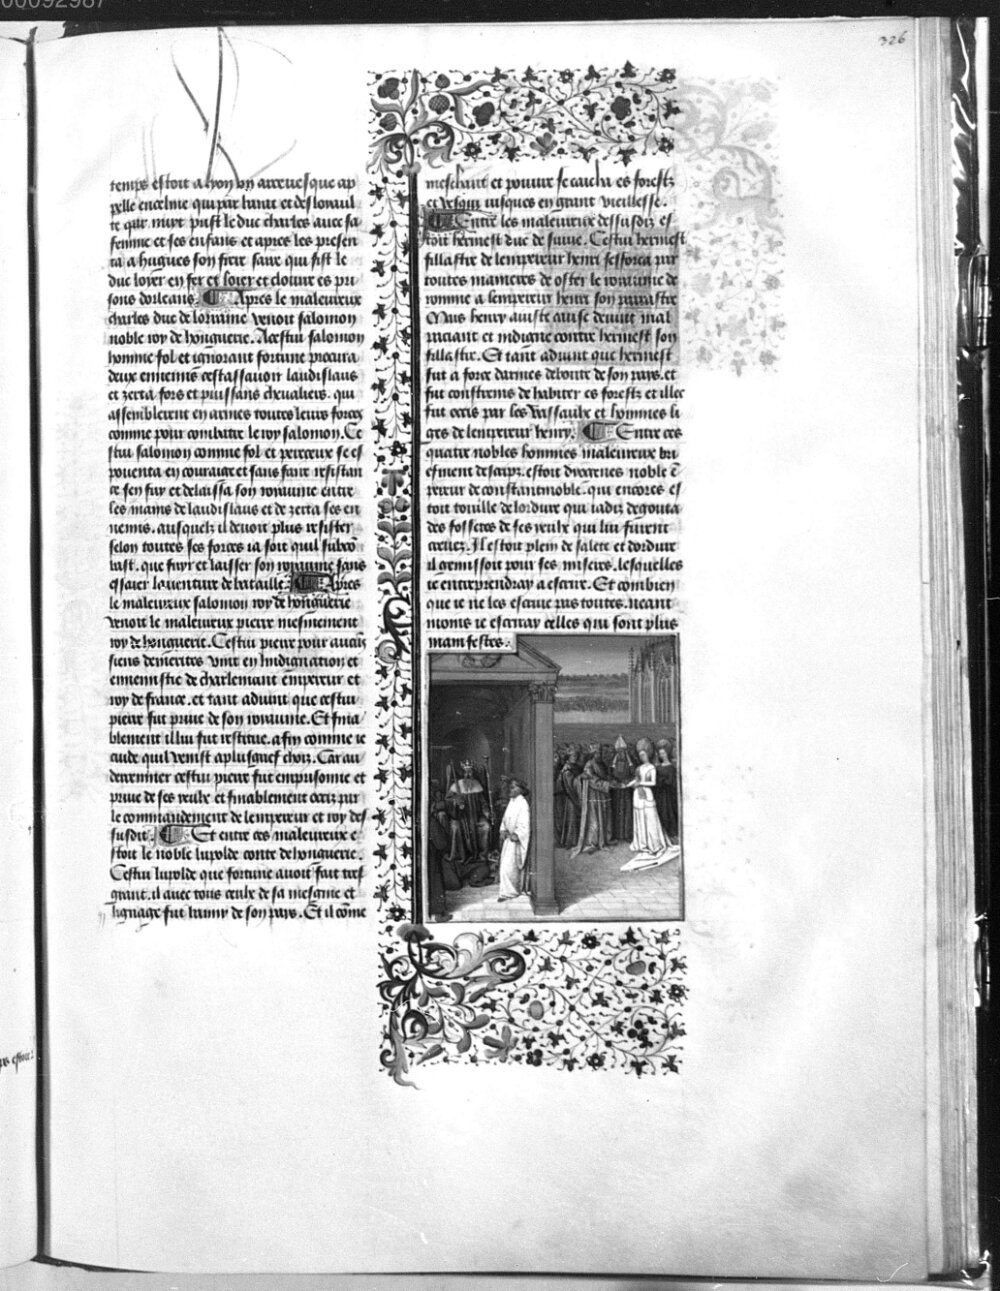 00092987
326
temps estoit a lyon vn arceuesque ap
pelle encelme qui par barat et desloyaul
te que nuyt prist le duc charles auec sa
femme et ses enfans et apres les presen
ta a hugues son frere saue qui fist le
duc loyer en fer et loier et clourre es pri
sons dorleans. Apres le maleureux
charles duc de lorraine venoit salomon
noble roy de honguerie. A cestui salomon
homme fol et ignorant fortune procura
deux ennemis cestassauoir laudislaus
et zerta fors et puissans cheualiers. qui
assemblerent en armes toutes leurs forces
comme pour combatre le roy salomon. Ce
stui salomon comme fol et pereceux se es
pouenta en couraige et sans faire resistan
ce sen fuy et delaissa son royaume entre
les mains de laudislaus et de zerta ses en
nemis. ausquelz il deuoit plus resister
selon toutes ses forces ia soit quil subcō
bast. que fuyr et laisser son royaume sans
essaier lauenture de bataille. Apres
le maleureux salomon roy de honguerie
venoit le maleureux pierre mesmement
roy de honguerie. Cestui pierre pour aucūs
siens demerites vint en Indignation et
ennemistie de charlemant empereur et
roy de france. et tant aduint que cestui
pierre fut priue de son royaume. Et finia
blement il lui fut restitue. afin comme ie
cuide quil venist a plus grief choiz. Car au
derrenier cestui pierre fut emprisonne et
priue de ses yeulx et finablement occiz par
le commandement de lempereur et roy des
susdit. Et entre ces maleureux e
stoit le noble lupolde conte de honguerie.
Cestui lupolde que fortune auoit fait tres
grant. il auec tous ceulx de sa mesgnie et
lignage fut banny de son pays. Et il cōme
meschant et pouure se cacha es forestz
et vesqui iusques en grant vieillesse.
Entre les maleureux dessusdiz es
toit hermest duc de suaue. Cestui hermest
fillastre de lempereur henri sefforca par
toutes manieres de oster le royaume de
romme a lempereur henri son parrastre
Mais henry auste auise deuint mal
meniant et indigne contre hermest son
fillastre. Et tant aduint que hermest
fut a force darmes deboute de son pays. et
fut constreins de habiter es forestz et illec
fut occis par les vassaulx et hommes li
ges de lempereur henry. Entre ces
quatre nobles hommes maleureux bri
efment descripz. estoit dyogenes noble ē
pereur de constantinoble. qui encores es
toit touille de lordure qui iadiz degouta
des fossetes de ses yeulx qui lui furent
creuez. Il estoit plein de salete et dordure
il gemissoit pour ses miseres. lesquelles
ie entreprendray a escrire. Et combien
que ie ne les escriue pas toutes. neant
moins ie escriray celles qui sont plus
manifestes.